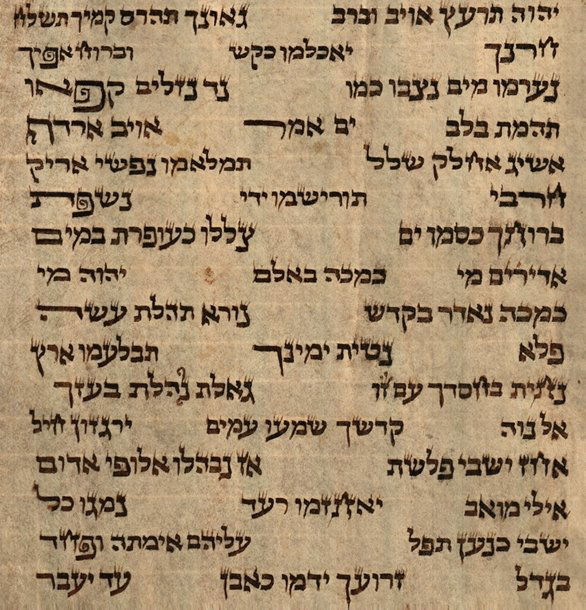 יהוה תרעץ אויב וברב גאונך תהרס קמיך תשלח
חרנך יאכלמו כקש וברוח אפיך
נערמו מים נצבו כמו נד נזלים קפאו
תהמת בלב ים אמר אויב ארדף
אשיג אחלק שלל תמלאמו נפשי אריק
חרבי תורישמו ידי נשפת
ברוחך כסמו ים צללו כעופרת במים
אדירים מי כמכה באלם יהוה מי
כמכה נאדר בקדש נורא תהלת עשה
פלא נטית ימינך תבלעמו ארץ
נחית בחסדך עם זו גאלת נהלת בעזך
אל נוה קדשך שמעו עמים ירגזון חיל
אחז ישבי פלשת אז נבהלו אלופי אדום
אילי מואב יאחזמו רעד נמגו כל
ישבי כנען תפל עליהם אימתה ופחד
בגדל זרועך ידמו כאבן עד יעבר